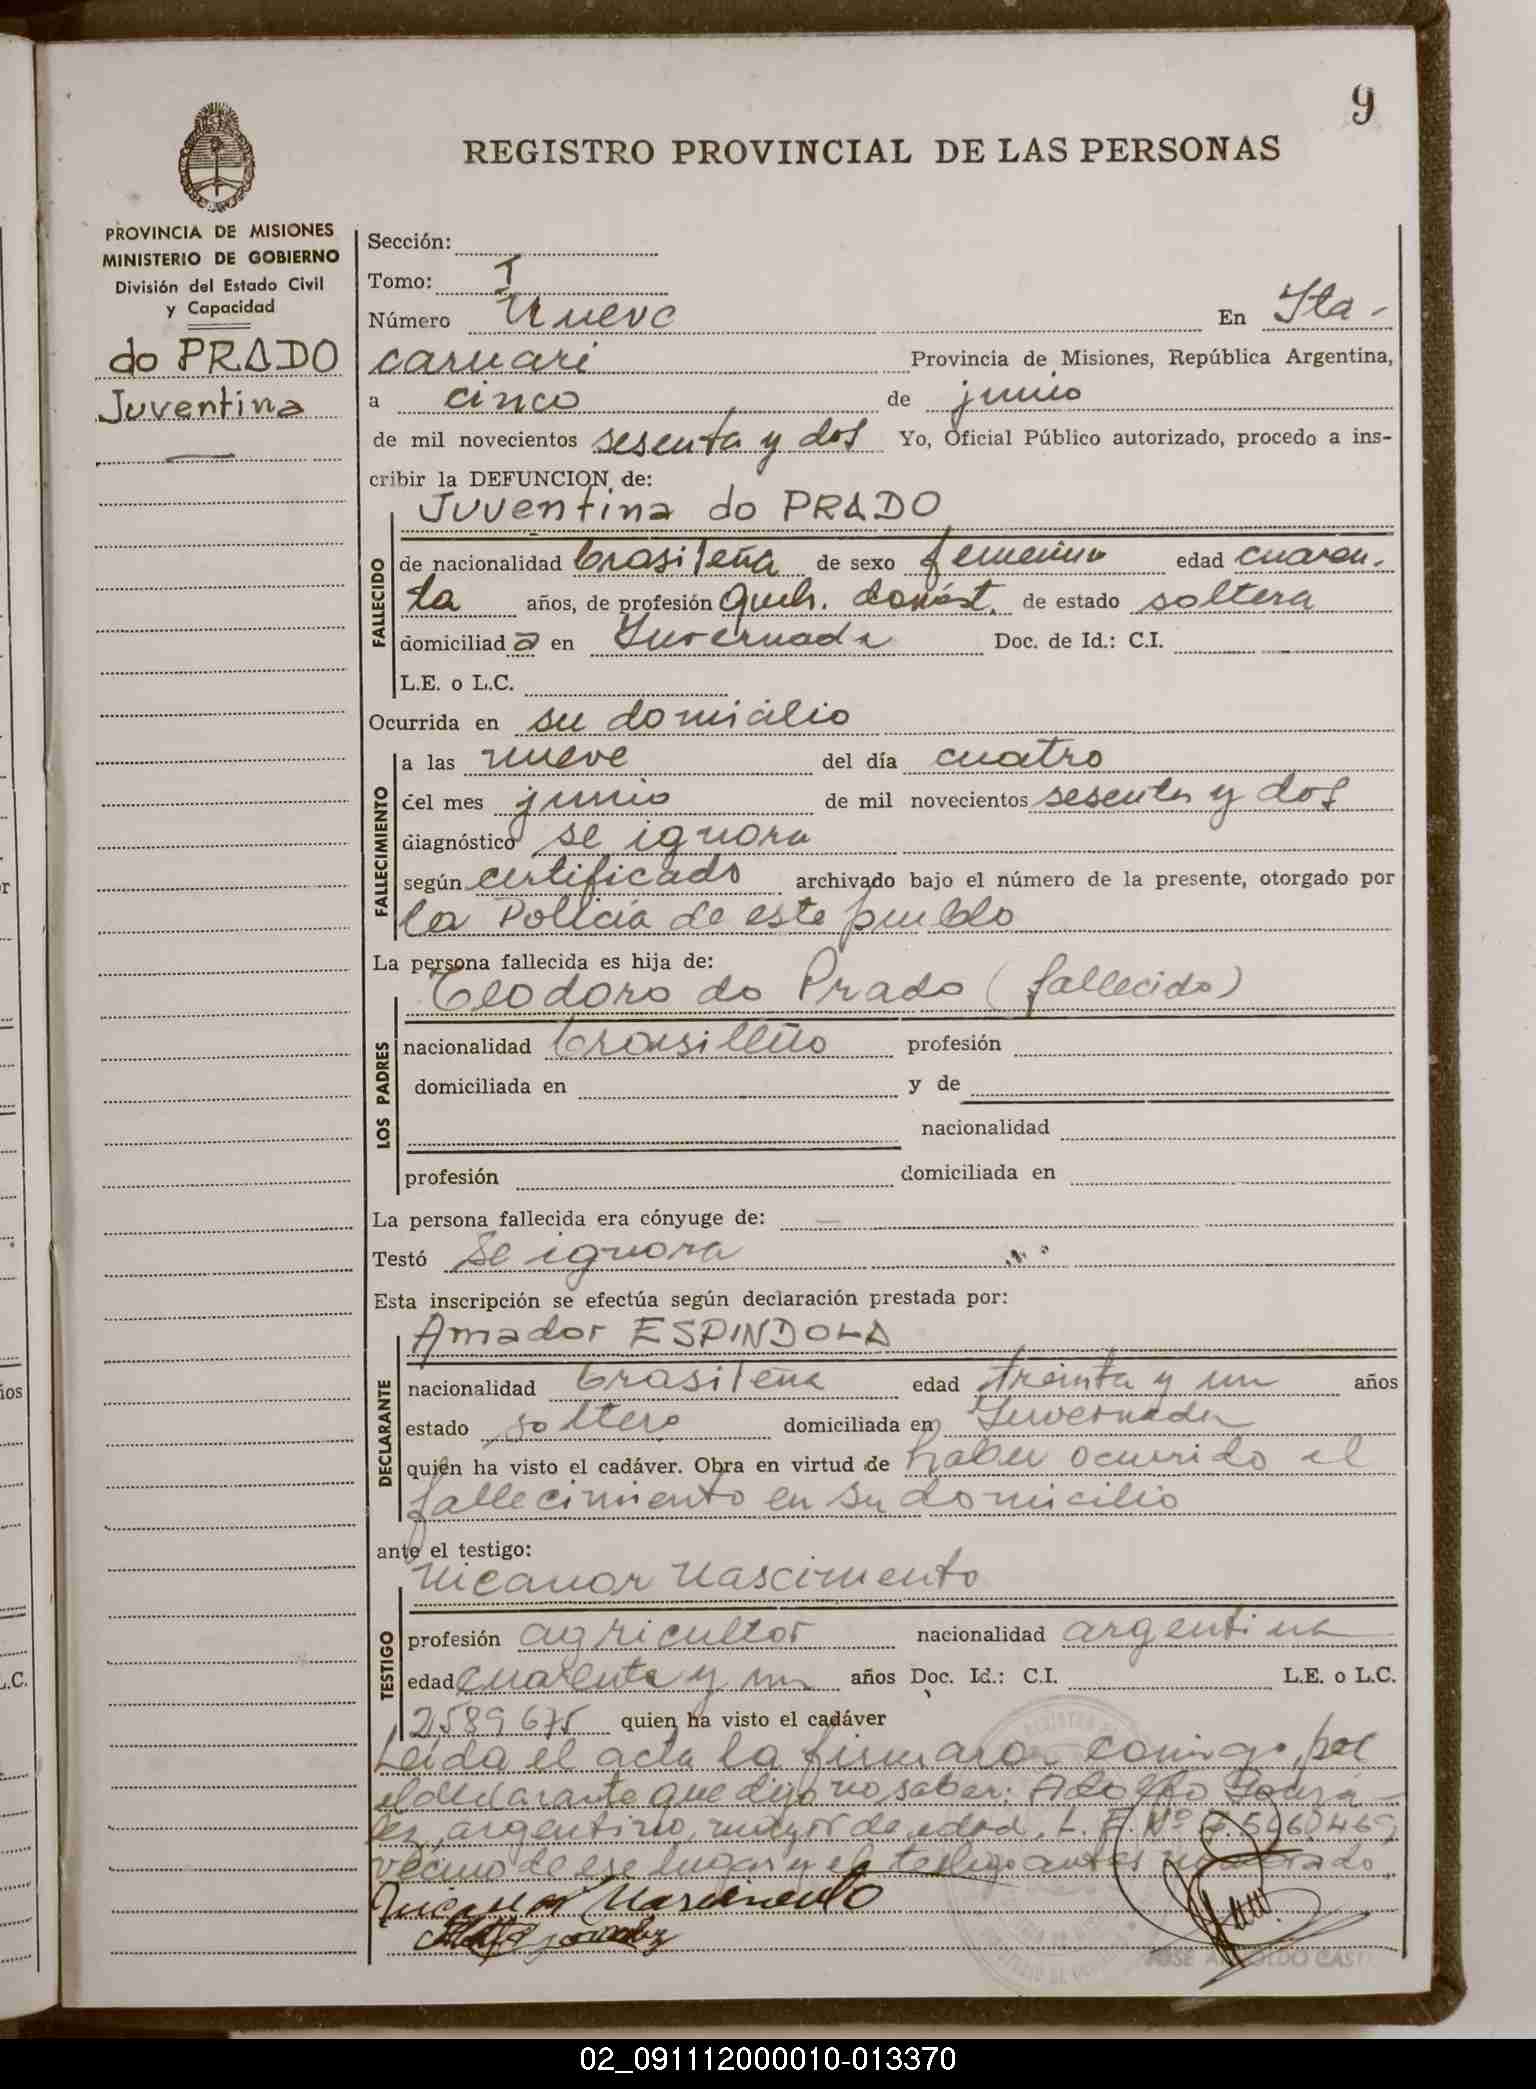 9
REGISTRO PROVINCIAL DE LAS PERSONAS
PROVINCIA DE MISIONES
MINISTERIO DE GOBIERNO
División del Estado Civil
y Capacidad
do PRADO
Juventina
Sección:
Tomo: I
Número Nueve En Ita-
caruaré Provincia de Misiones, República Argentina,
a cinco de junio
de mil novecientos sesenta y dos Yo, Oficial Público autorizado, procedo a ins-
cribir la DEFUNCION de:
Juventina do PRADO
FALLECIDO
de nacionalidad brasileña de sexo femenino edad cuaren-
ta años, de profesión Queh. domést. de estado soltera
domiciliada en Invernada Doc. de Id.: C.I.
L.E. o L.C.
Ocurrida en su domicilio
FALLECIMIENTO
a las nueve del día cuatro
del mes junio de mil novecientos sesenta y dos
diagnóstico se ignora
según certificado archivado bajo el número de la presente, otorgado por
la Policía de este pueblo
La persona fallecida es hija de:
Teodoro do Prado (fallecido)
LOS PADRES
nacionalidad brasileño profesión
domiciliada en y de
nacionalidad
profesión domiciliada en
La persona fallecida era cónyuge de: —
Testó Se ignora
Esta inscripción se efectúa según declaración prestada por:
Amador ESPINDOLA
DECLARANTE
nacionalidad brasileña edad treinta y un años
estado soltero domiciliada en Invernada
quien ha visto el cadáver. Obra en virtud de haber ocurrido el
fallecimiento en su domicilio
ante el testigo:
Nicanor Nascimento
TESTIGO
profesión agricultor nacionalidad argentina
edad cuarenta y un años Doc. Id.: C.I. L.E. o L.C.
2589675 quien ha visto el cadáver
Leída el acta la firmaron conmigo, por
el declarante que dijo no saber: Adolfo Gonzá-
lez, argentino, mayor de edad, L. E. Nº
vecino de ese lugar y el testigo antes nombrado
Nicanor Nascimento
Gonzalez
02_091112000010-013370